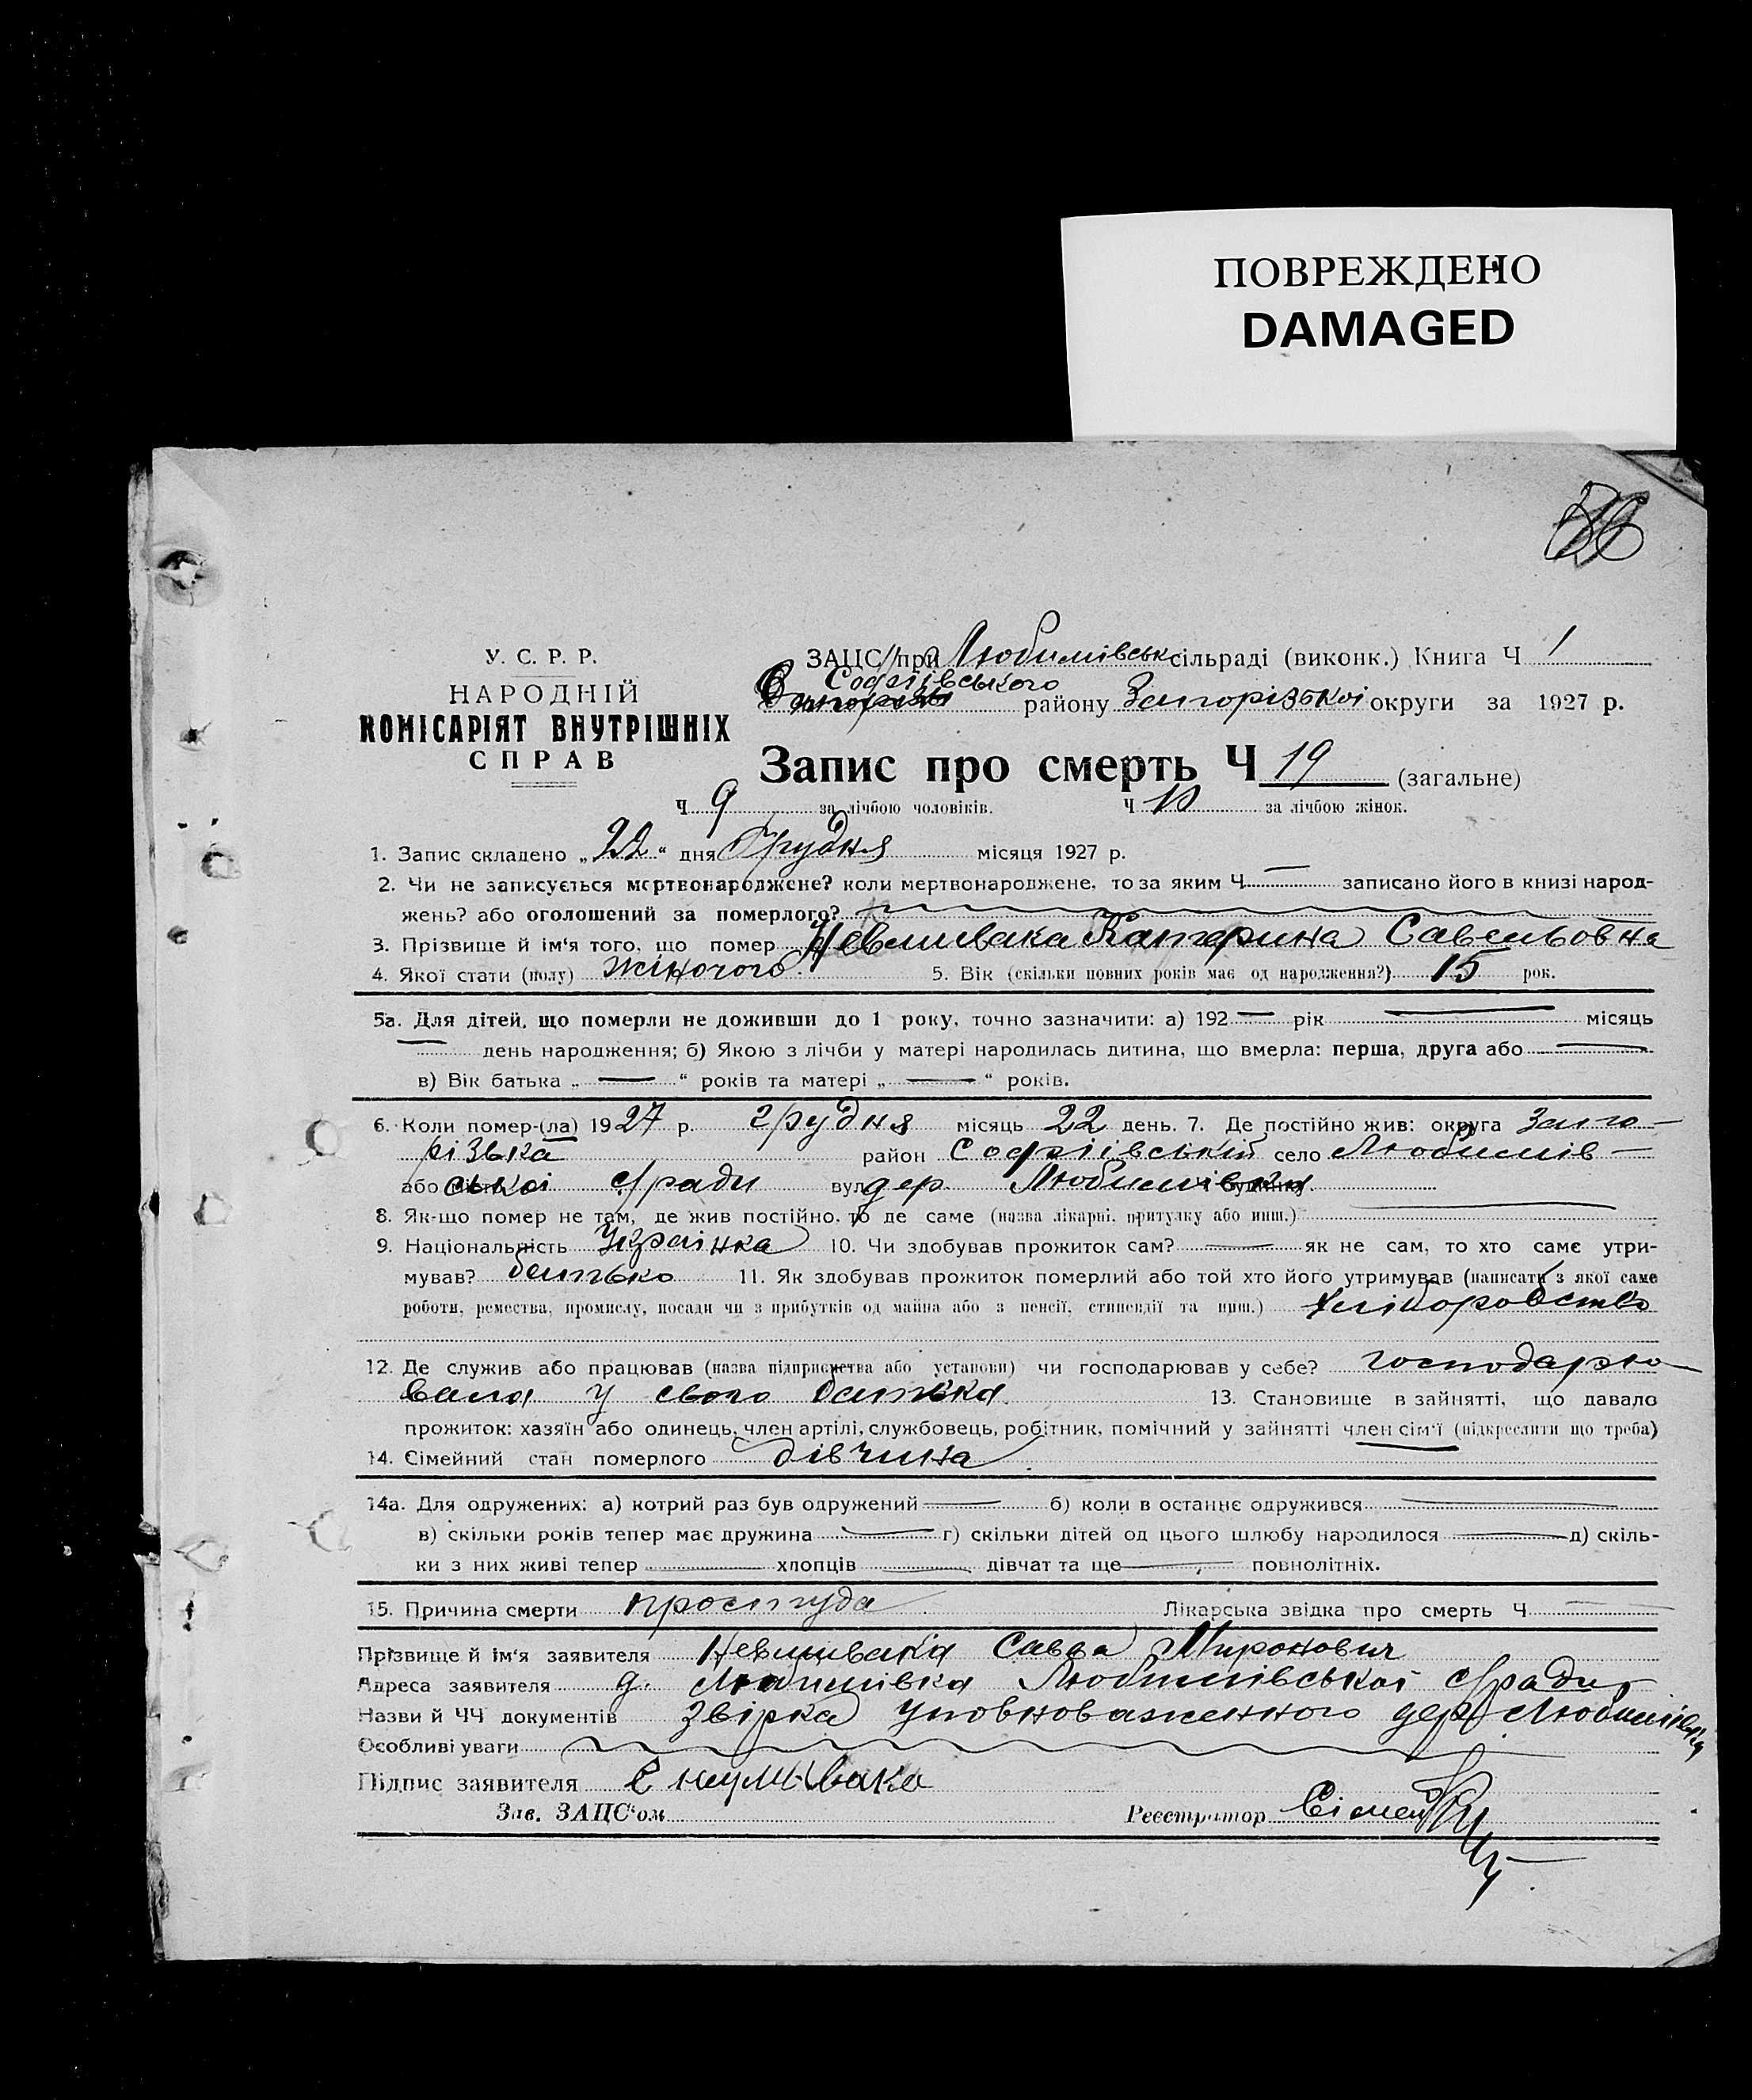 ПОВРЕЖДЕНО
DAMAGED
У. С. Р. Р.
НАРОДНІЙ
КОМІСАРІЯТ ВНУТРІШНІХ
СПРАВ
ЗАЦС при Любимівськ сільраді (виконк.) Книга Ч 1
Софіївського
району Запорізької округи за 1927 р.
Запис про смерть Ч 19 (загальне)
Ч 9 за лічбою чоловіків. Ч 10 за лічбою жінок.
1. Запис складено „22“ дня Грудня місяця 1927 р.
2. Чи не записується мертвонароджене? коли мертвонароджене, то за яким Ч — записано його в книзі народ-
жень? або оголошений за померлого?
3. Прізвище й ім'я того, що помер Катерина Савельовна
4. Якої стати (полу) жіночого 5. Вік (скільки повних років має од народження?) 15 рок.
5а. Для дітей, що померли не доживши до 1 року, точно зазначити: а) 192— рік — місяць
— день народження; б) Якою з лічби у матері народилась дитина, що вмерла: перша, друга або —
в) Вік батька „—“ років та матері „—“ років.
6. Коли помер-(ла) 1927 р. грудня місяць 22 день. 7. Де постійно жив: округа Запо-
різька район Софіївський село Любимів-
або ської с/ради вул дер Любимівка
8. Як-що помер не там, де жив постійно, то де саме (назва лікарні, притулку або инш.) —
9. Національність Українка 10. Чи здобував прожиток сам? — як не сам, то хто саме утри-
мував? батько 11. Як здобував прожиток померлий або той хто його утримував (написати з якої саме
роботи, ремества, промислу, посади чи з прибутків од майна або з пенсії, стипендії та инш.) хліборобство
12. Де служив або працював (назва підприємства або установи) чи господарював у себе? господарю-
вала у свого батька 13. Становище в зайнятті, що давало
прожиток: хазяїн або одинець, член артілі, службовець, робітник, помічний у зайнятті член сім'ї (підкреслити що треба)
14. Сімейний стан померлого дівчина
14а. Для одружених: а) котрий раз був одружений — б) коли в останнє одружився —
в) скільки років тепер має дружина — г) скільки дітей од цього шлюбу народилося — д) скіль-
ки з них живі тепер — хлопців — дівчат та ще — повнолітніх.
15. Причина смерти простуда Лікарська звідка про смерть Ч —
Прізвище й ім'я заявителя Савва Миронович
Адреса заявителя д. Любимівка Любимівської с/ради
Назви й ЧЧ документів Звірка уповноваженного дер Любимівка
Особливі уваги
Підпис заявителя
Зав. ЗАЦС'ом Реєстратор